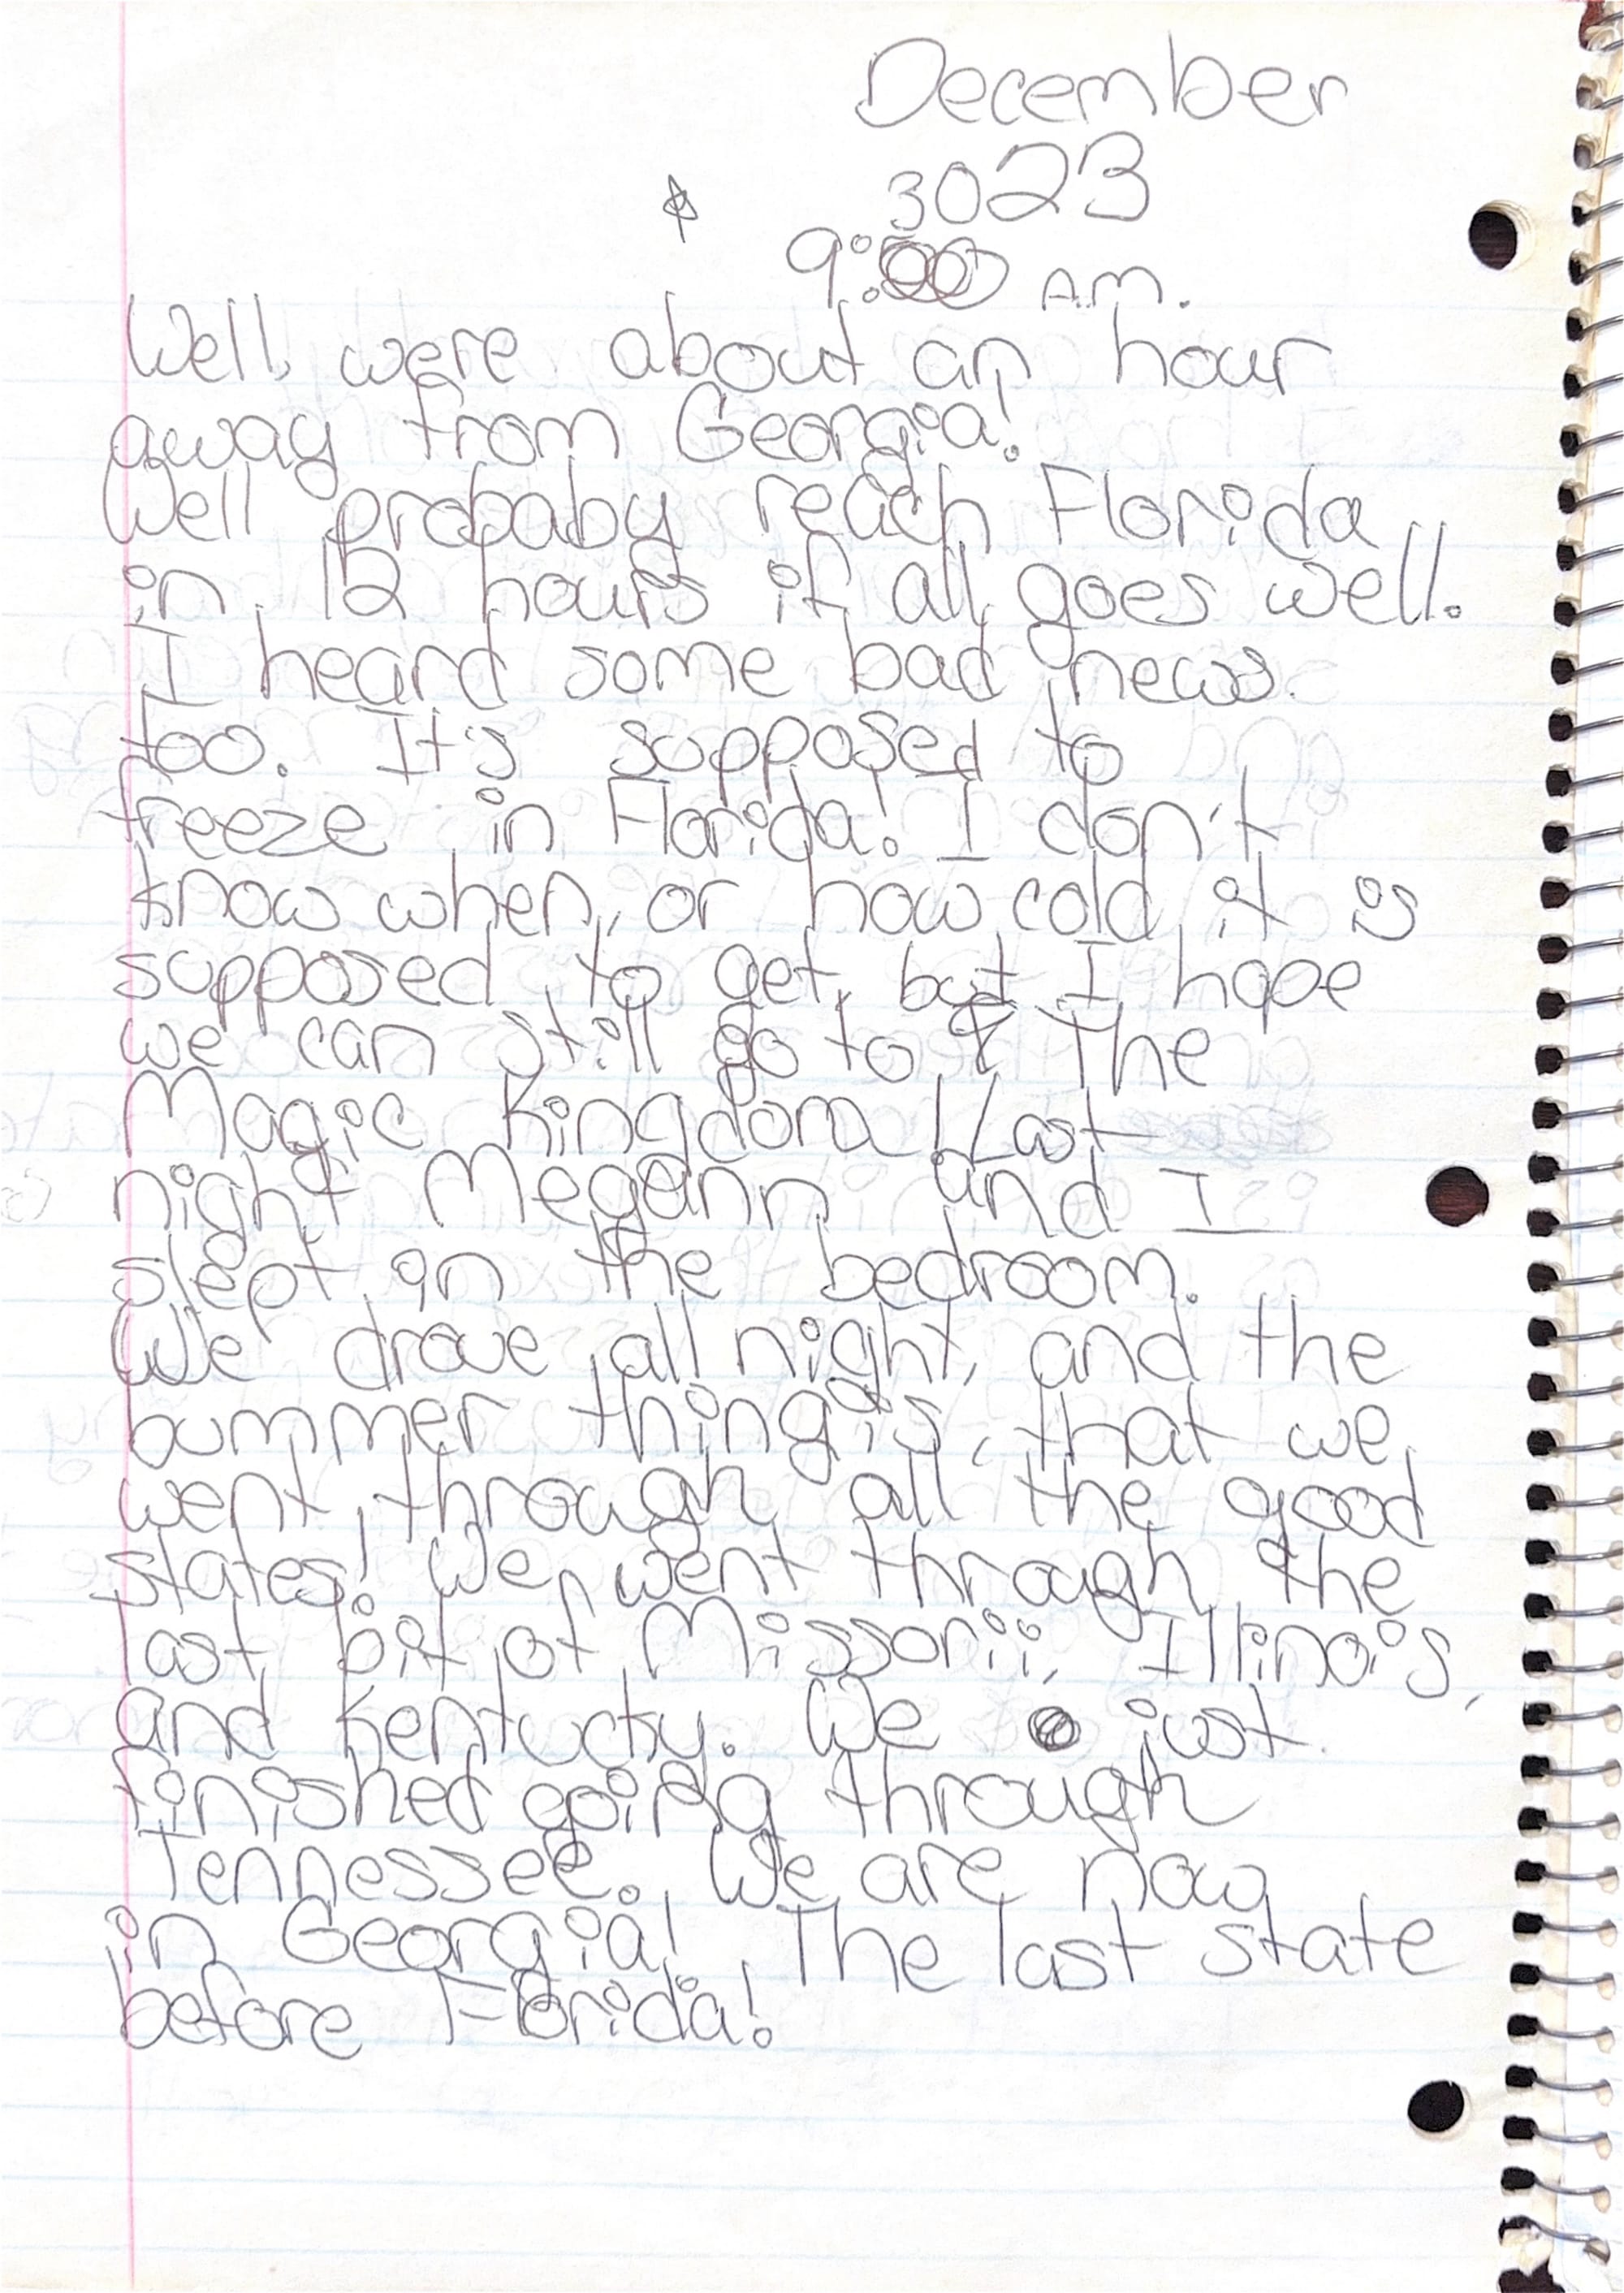 December
3023
9:00 A.M.
Well, were about an hour
away from Georgia!
Well probaby reach Florida
in 12 hours if all goes well.
I heard some bad news
too. It's supposed to
freeze in Florida! I don't
know when, or how cold it is
supposed to get, but I hope
we can still go to The
Magic Kingdom! Last
night Megann and I
slept in the bedroom.
We drove all night, and the
bummer thing is, that we
went through all the good
states! We went through the
last bit of Missorii, Illinois,
and Kentucky. We just
finished going through
Tennessee. We are now
in Georgia! The last state
before Florida!